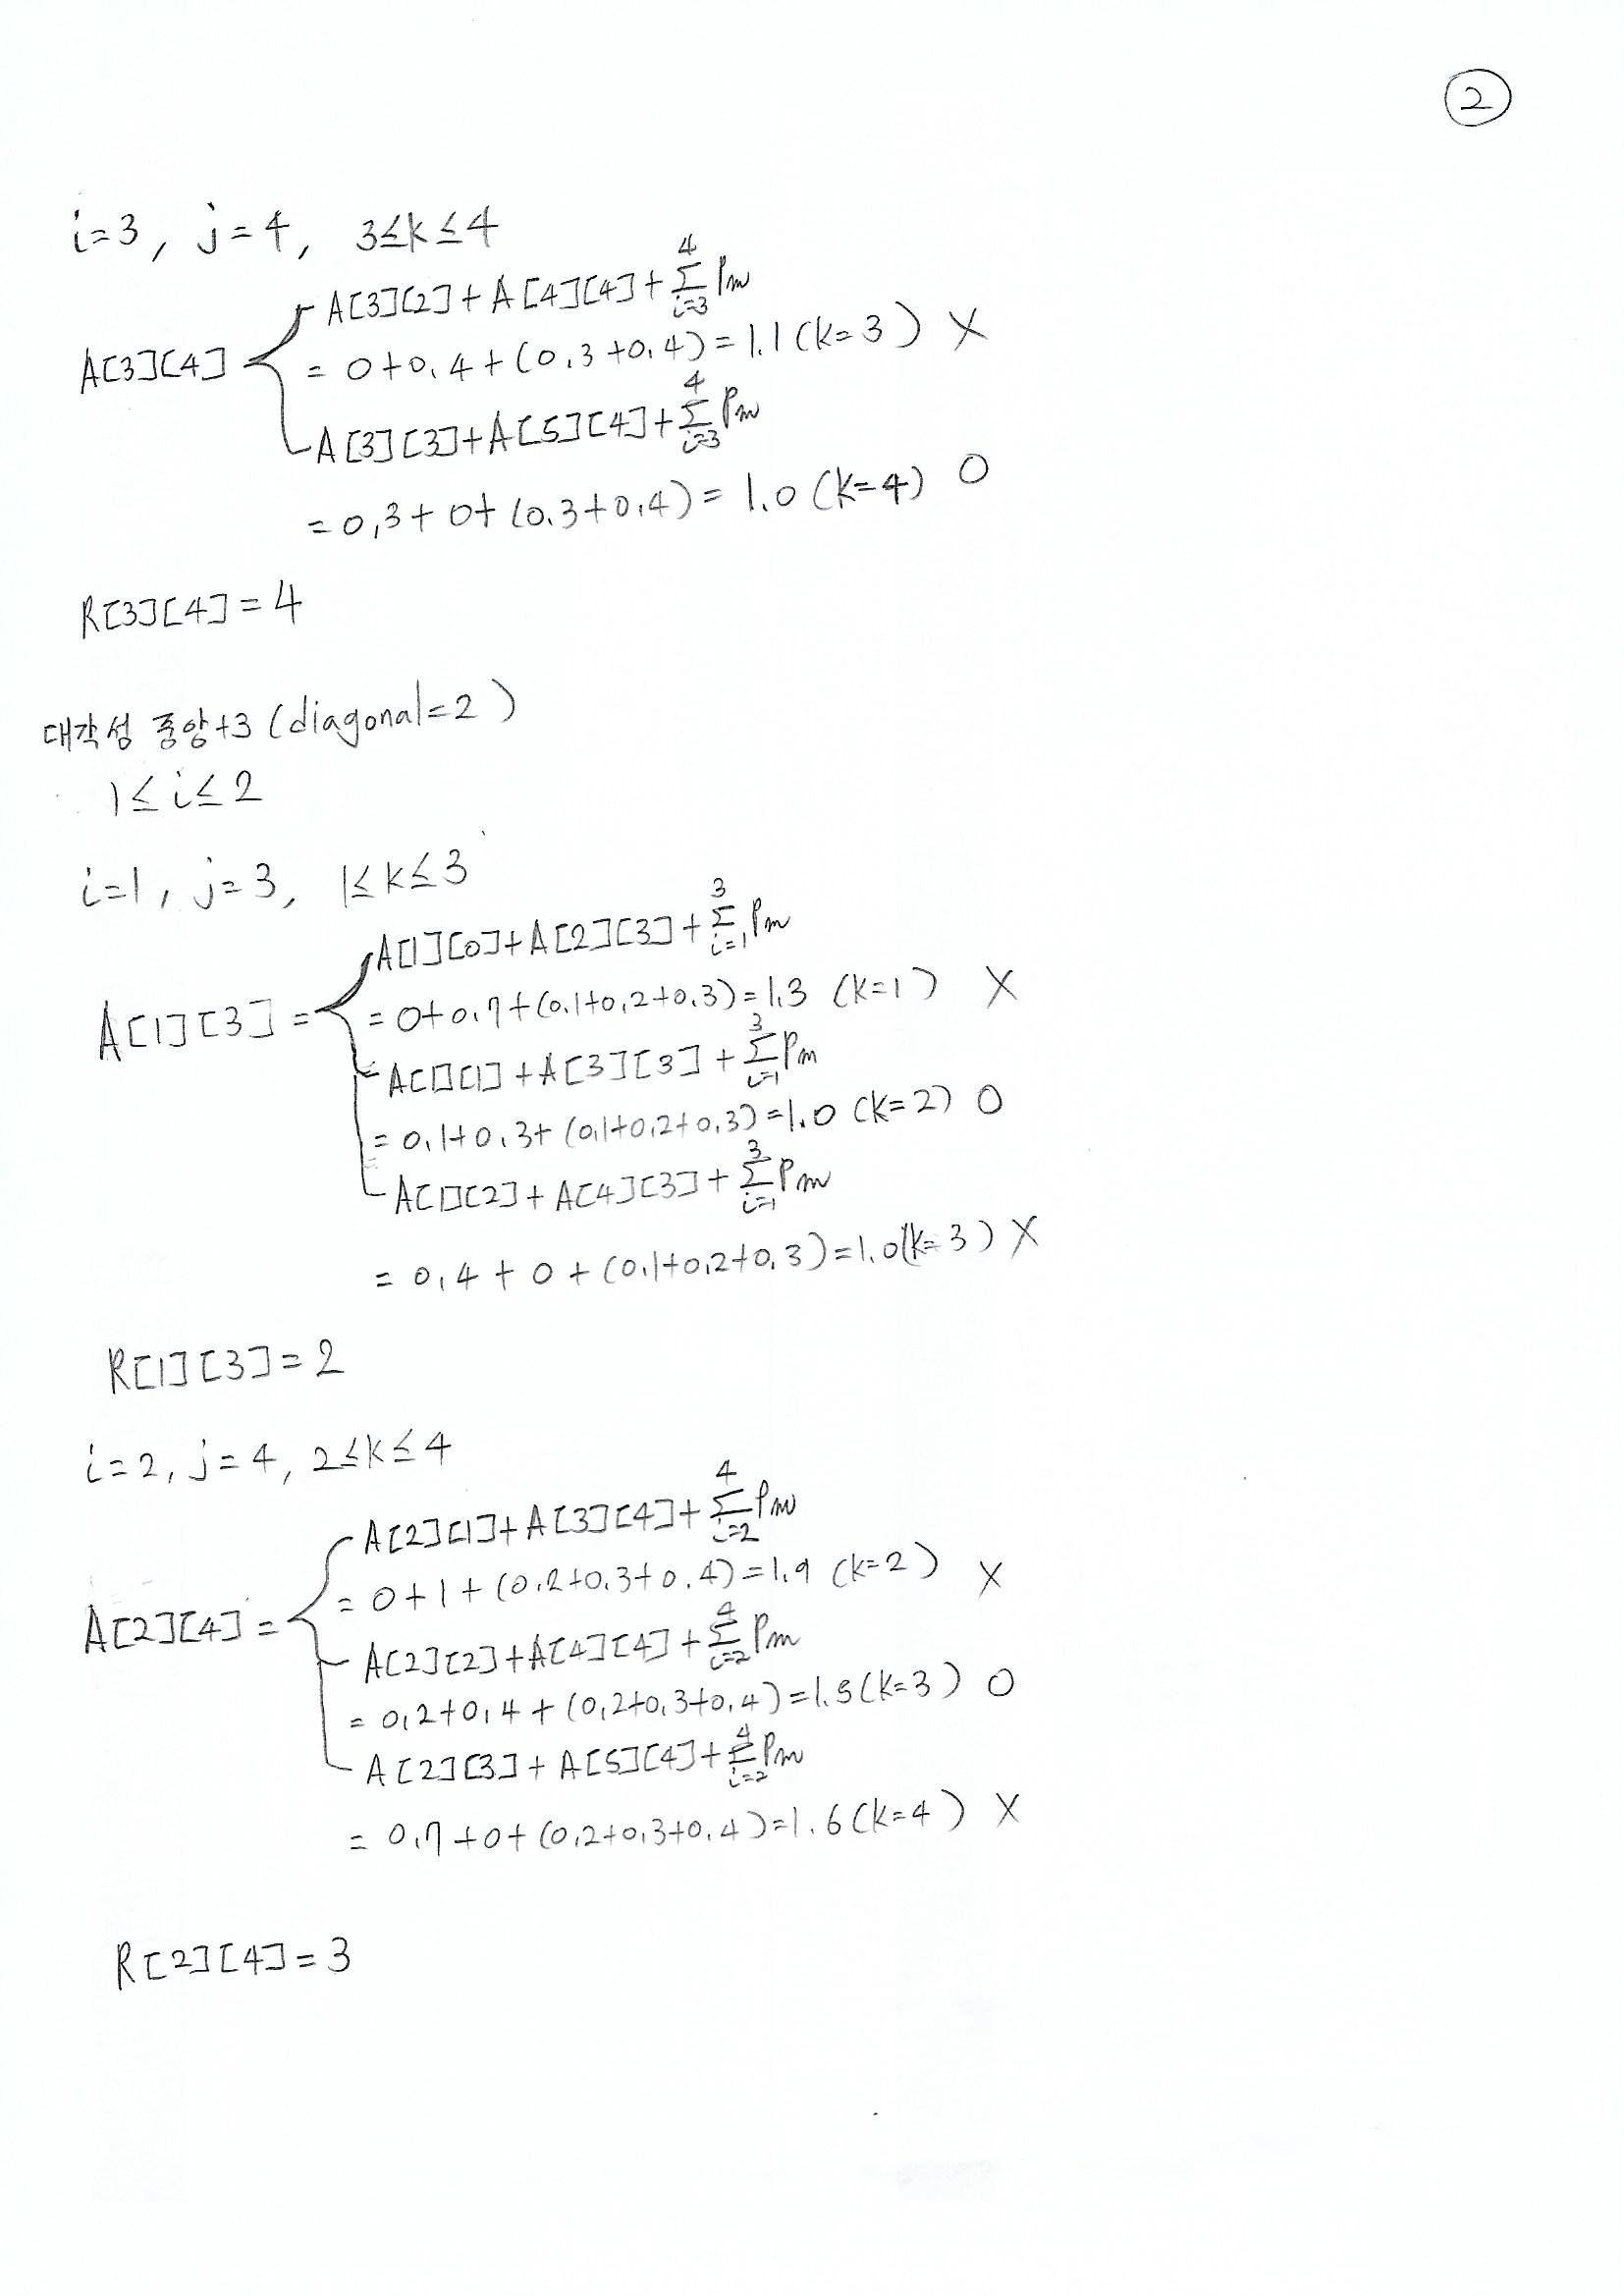 ②
i=3, j=4, 3≤k≤4
A[3][2]+A[4][4]+∑_{i=3}^{4} Pm
A[3][4] = 0+0.4+(0.3+0.4)=1.1 (k=3) X
A[3][3]+A[5][4]+∑_{i=3}^{4} Pm
=0.3+0+(0.3+0.4)=1.0 (k=4) O
R[3][4]=4
대각성 중앙+3 (diagonal=2)
1≤i≤2
i=1, j=3, 1≤k≤3
A[1][0]+A[2][3]+∑_{i=1}^{3} Pm
A[1][3]= =0+0.7+(0.1+0.2+0.3)=1.3 (k=1) X
A[1][1]+A[3][3]+∑_{i=1}^{3} Pm
=0.1+0.3+(0.1+0.2+0.3)=1.0 (k=2) O
A[1][2]+A[4][3]+∑_{i=1}^{3} Pm
=0.4+0+(0.1+0.2+0.3)=1.0(k=3) X
R[1][3]=2
i=2, j=4, 2≤k≤4
A[2][1]+A[3][4]+∑_{i=2}^{4} Pm
=0+1+(0.2+0.3+0.4)=1.9 (k=2) X
A[2][4]=
A[2][2]+A[4][4]+∑_{i=2}^{4} Pm
=0.2+0.4+(0.2+0.3+0.4)=1.5(k=3) O
A[2][3]+A[5][4]+∑_{i=2}^{4} Pm
=0.7+0+(0.2+0.3+0.4)=1.6(k=4) X
R[2][4]=3